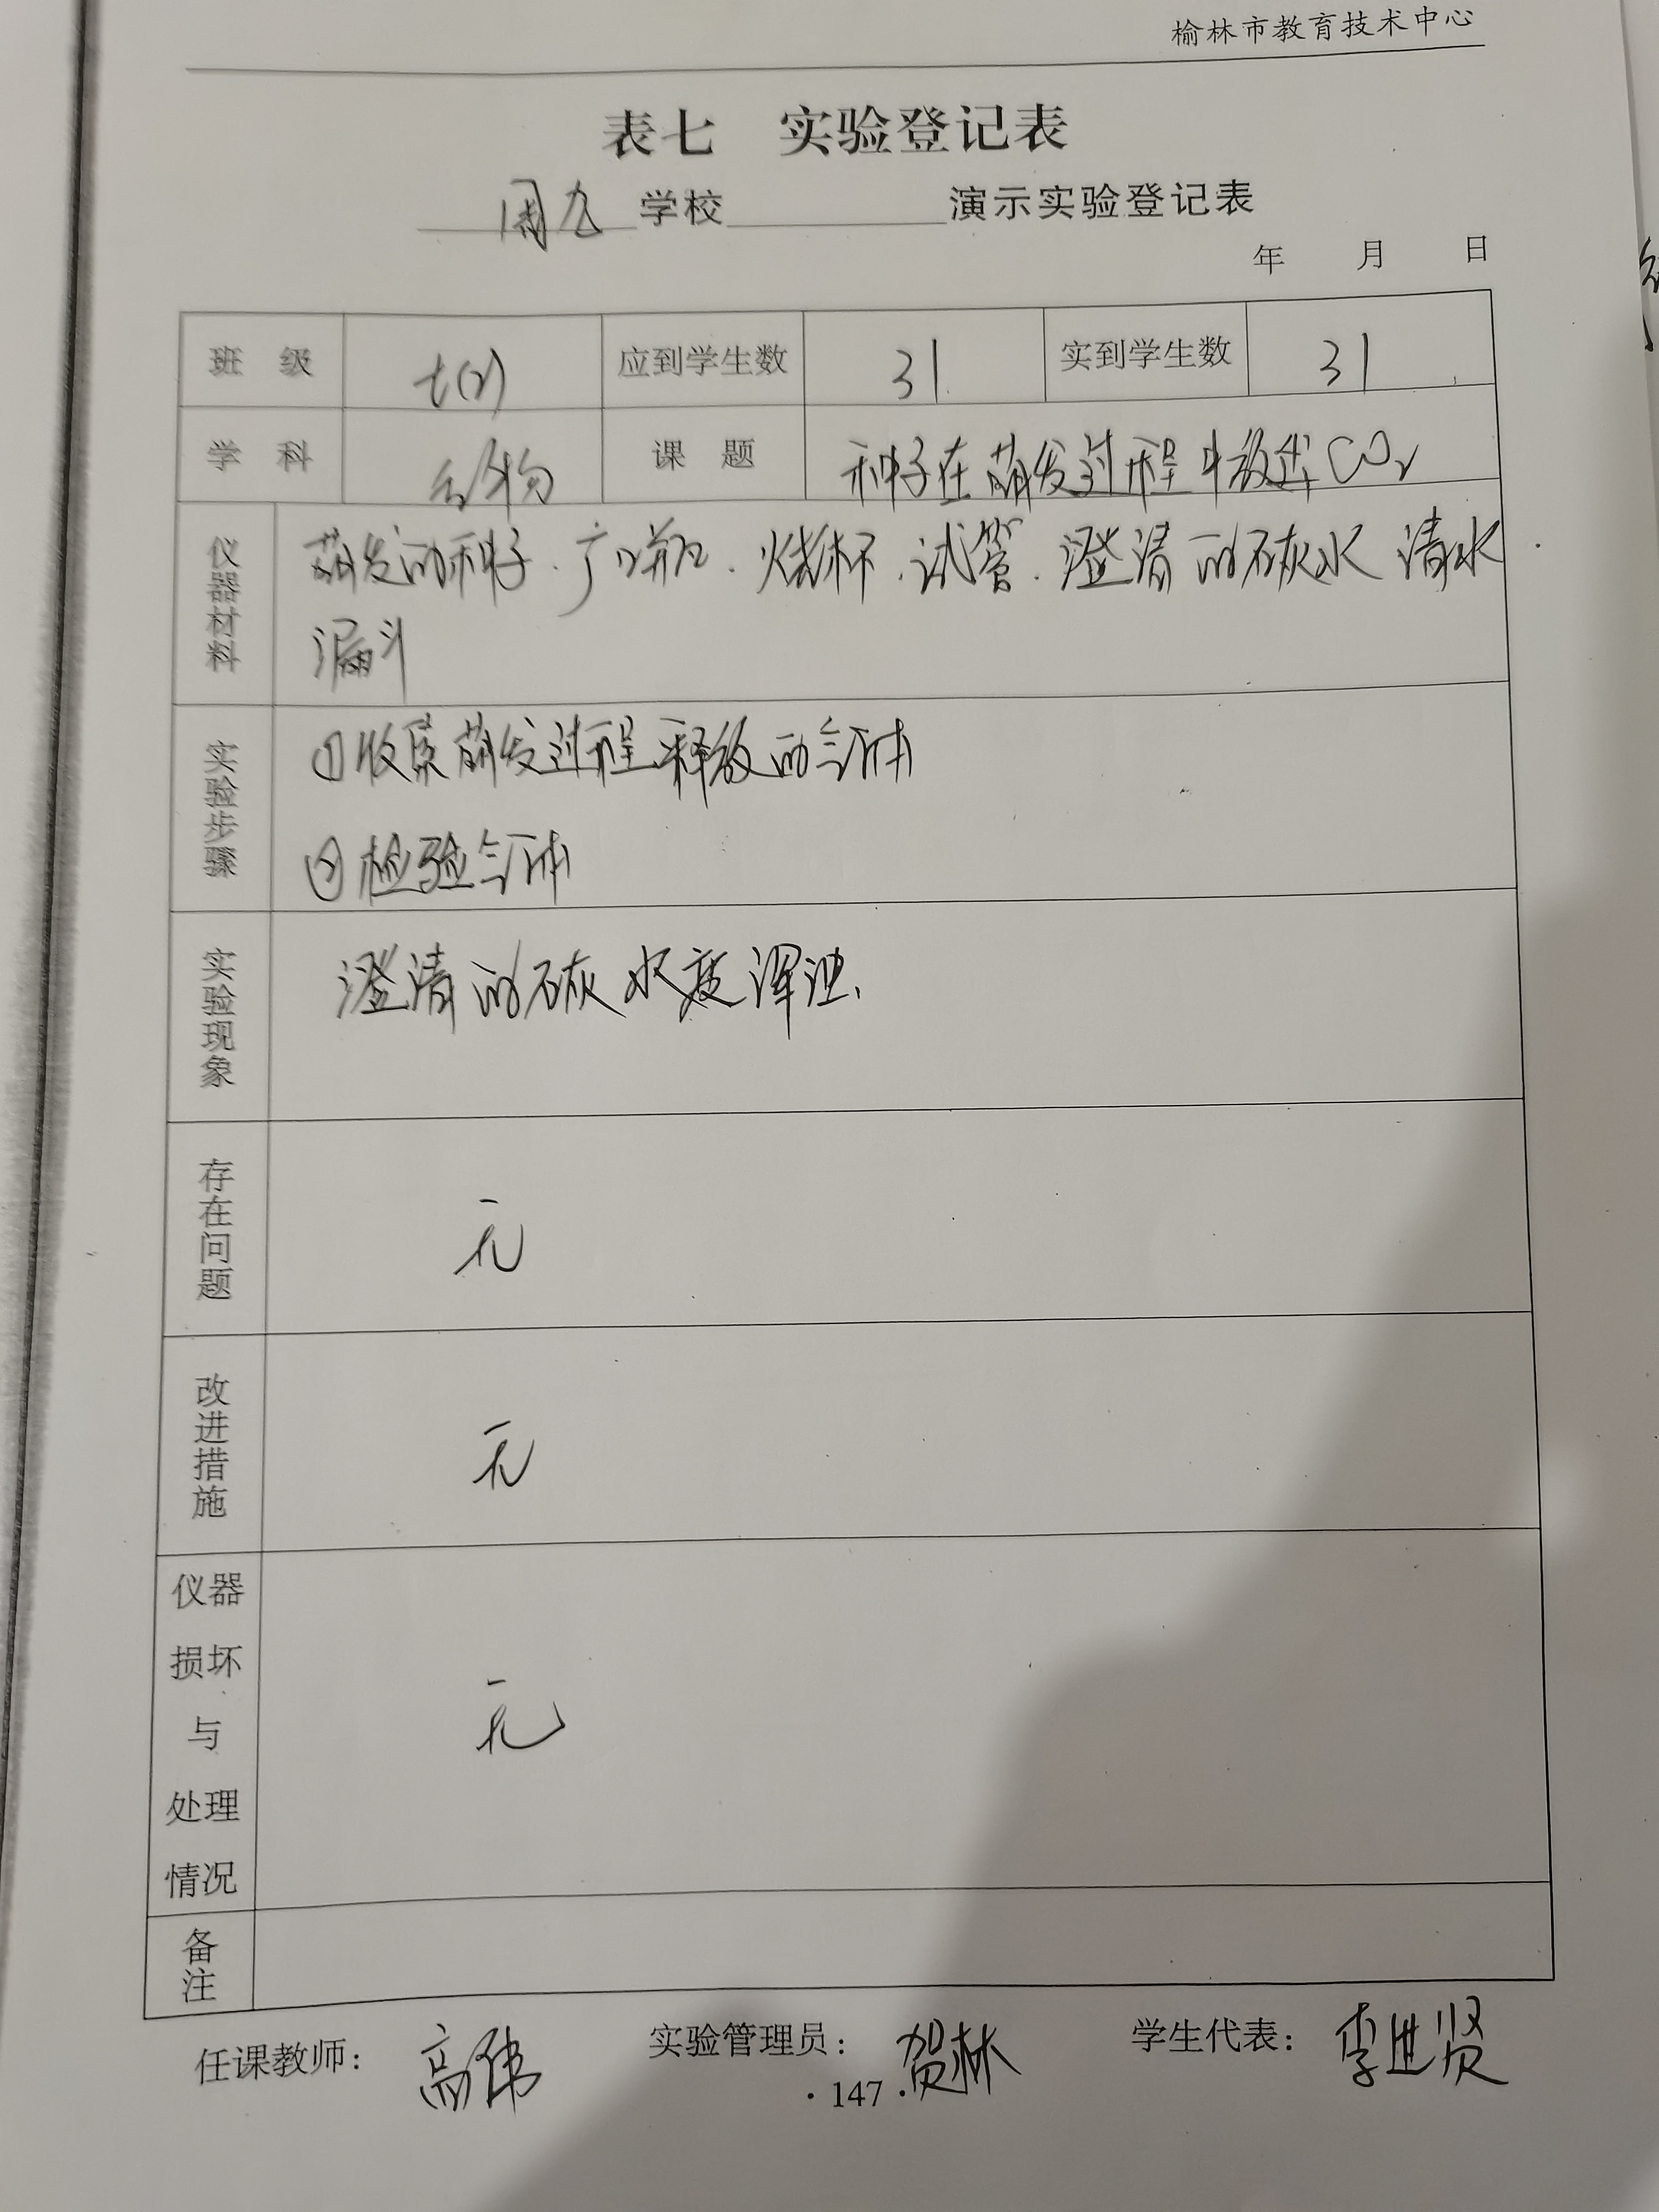 榆林市教育技术中心
表七 实验登记表
学校 演示实验登记表
年 月 日
班级 七(2) 应到学生数 31 实到学生数 31
学科 生物 课题 种子在萌发过程中放出CO₂
仪器材料 萌发的种子.广口瓶.烧杯.试管.澄清的石灰水 清水
漏斗
实验步骤 ①收集萌发过程释放的气体
②检验气体
实验现象 澄清的石灰水变浑浊、
存在问题 无
改进措施 无
仪器
损坏
与 无
处理
情况
备注
任课教师: 高伟 实验管理员: 贺林 学生代表: 李进贤
·147·